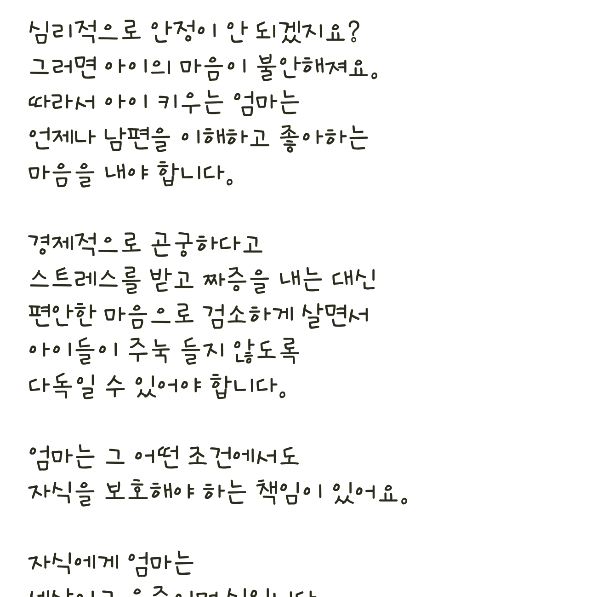 심리적으로 안정이 안 되겠지요?
그러면 아이의 마음이 불안해져요.
따라서 아이 키우는 엄마는
언제나 남편을 이해하고 좋아하는
마음을 내야 합니다.
경제적으로 곤궁하다고
스트레스를 받고 짜증을 내는 대신
편안한 마음으로 검소하게 살면서
아이들이 주눅 들지 않도록
다독일 수 있어야 합니다.
엄마는 그 어떤 조건에서도
자식을 보호해야 하는 책임이 있어요.
자식에게 엄마는